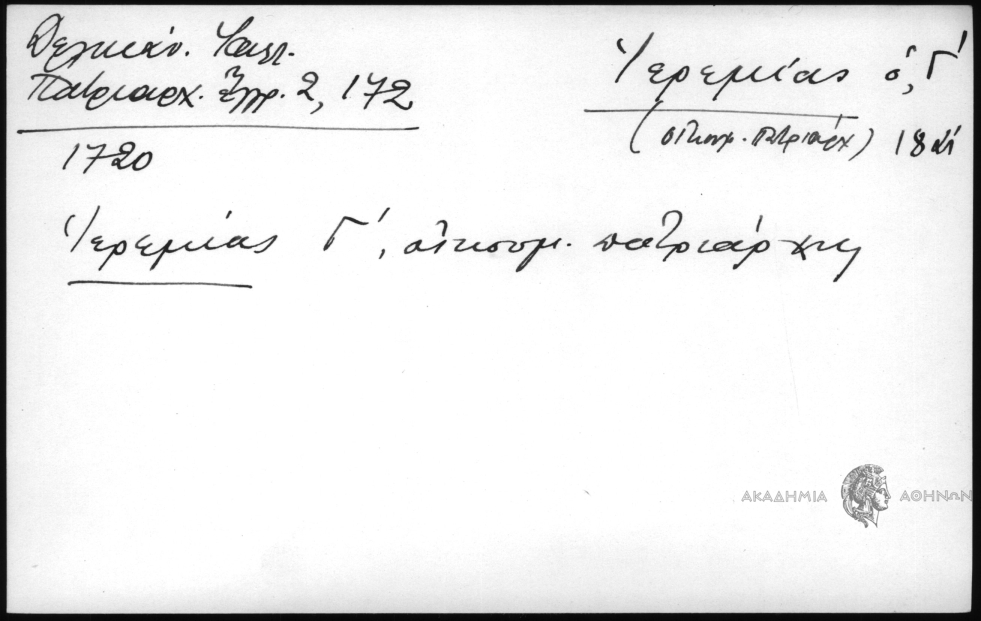 Δελικάν.
Πατριαρχ. Ἔγγρ. 2, 172
1720
Ἱερεμίας ὁ, Γ΄
(οἰκουμ. πατριάρχ) 18
Ἱερεμίας Γ΄, οἰκουμ. πατριάρχης
ΑΚΑΔΗΜΙΑ ΑΘΗΝΩΝ